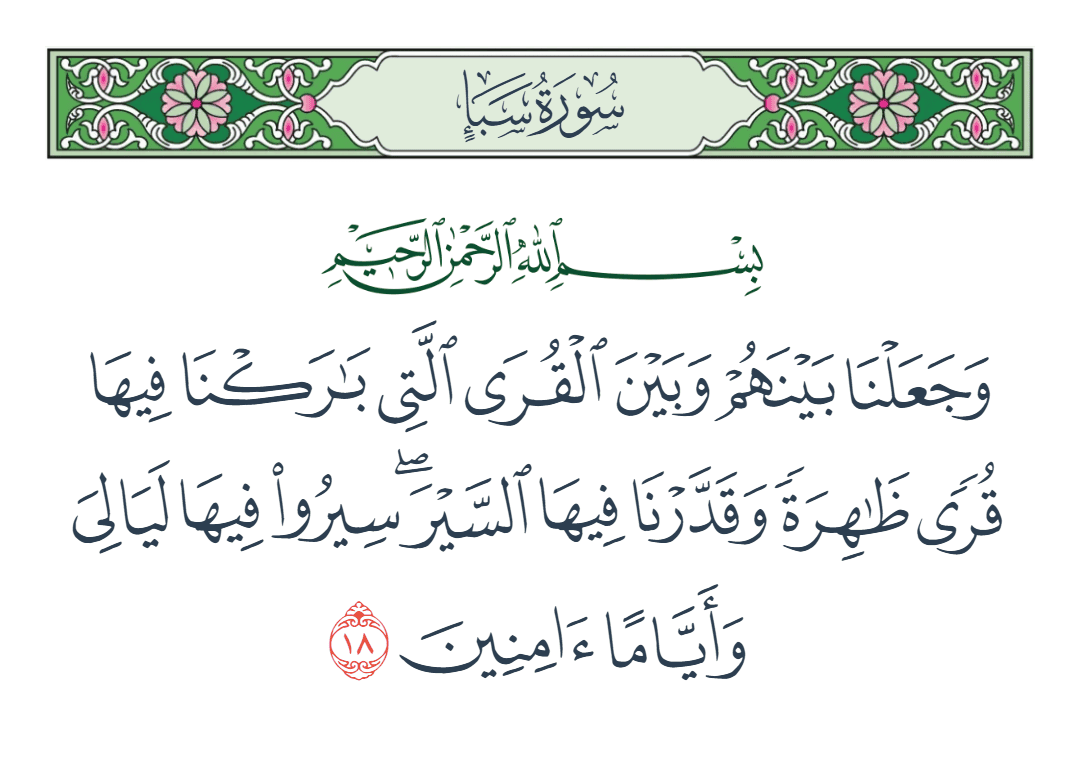 سُورَةُ سَبَإٍ
بِسْمِ ٱللَّهِ ٱلرَّحْمَٰنِ ٱلرَّحِيمِ
وَجَعَلْنَا بَيْنَهُمْ وَبَيْنَ ٱلْقُرَى ٱلَّتِى بَٰرَكْنَا فِيهَا
قُرًى ظَٰهِرَةً وَقَدَّرْنَا فِيهَا ٱلسَّيْرَ ۖ سِيرُوا۟ فِيهَا لَيَالِىَ
وَأَيَّامًا ءَامِنِينَ ١٨